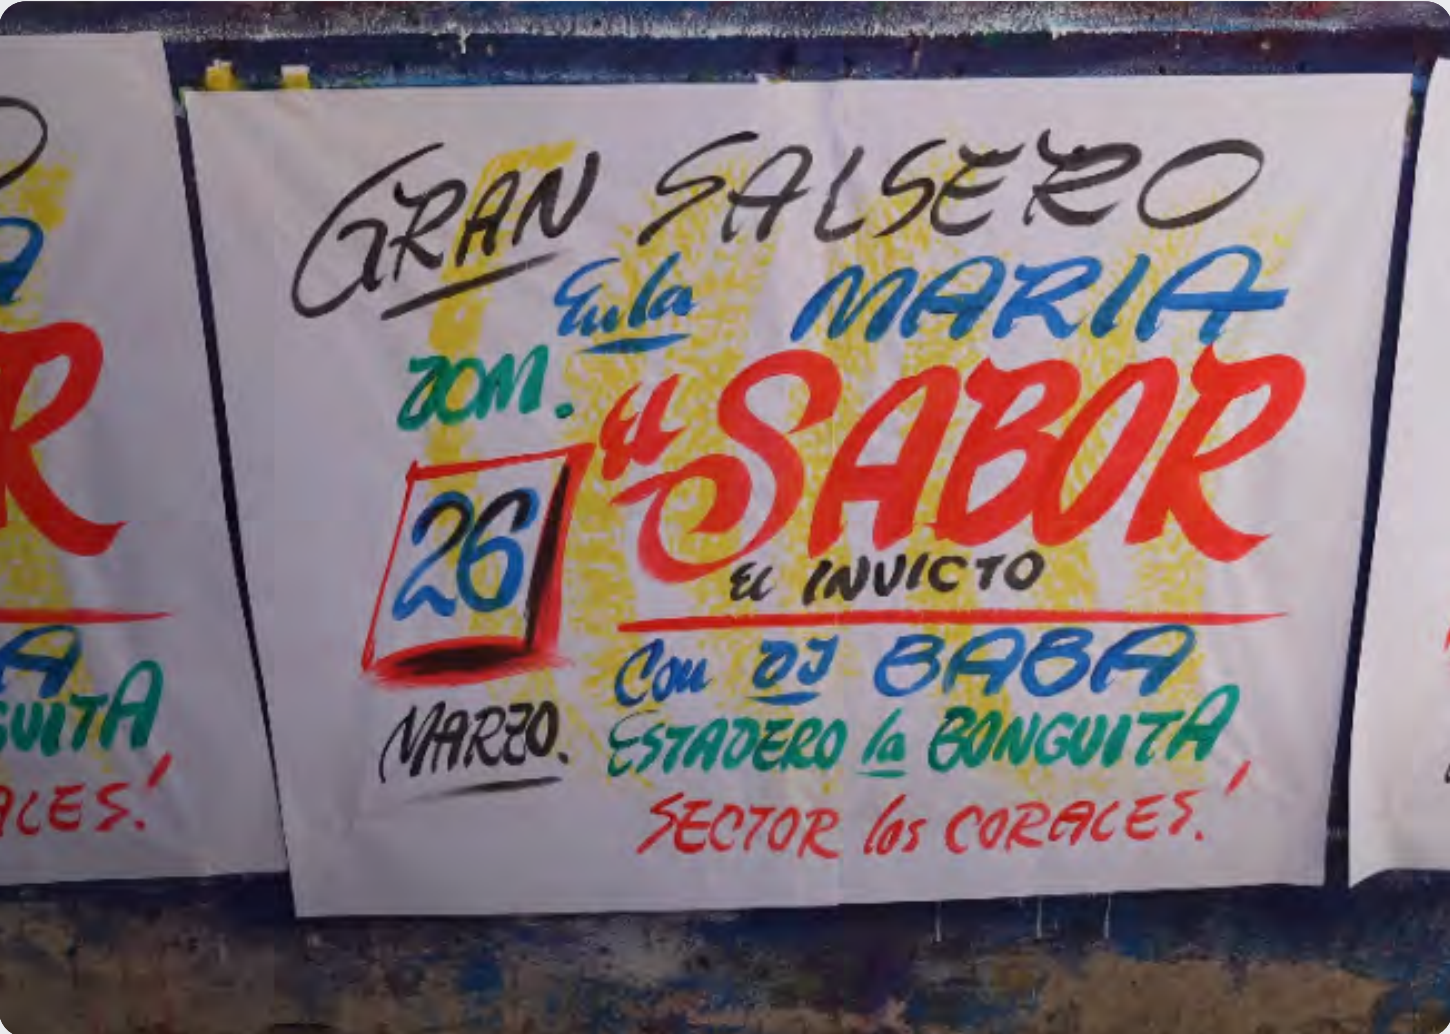 GRAN SALSERO
En la MARIA
DOM.
26
MARZO.
El SABOR
EL INVICTO
Con DJ BABA
ESTADERO la BONGUITA
SECTOR los CORALES!
A
R
A
GUITA
ALES!